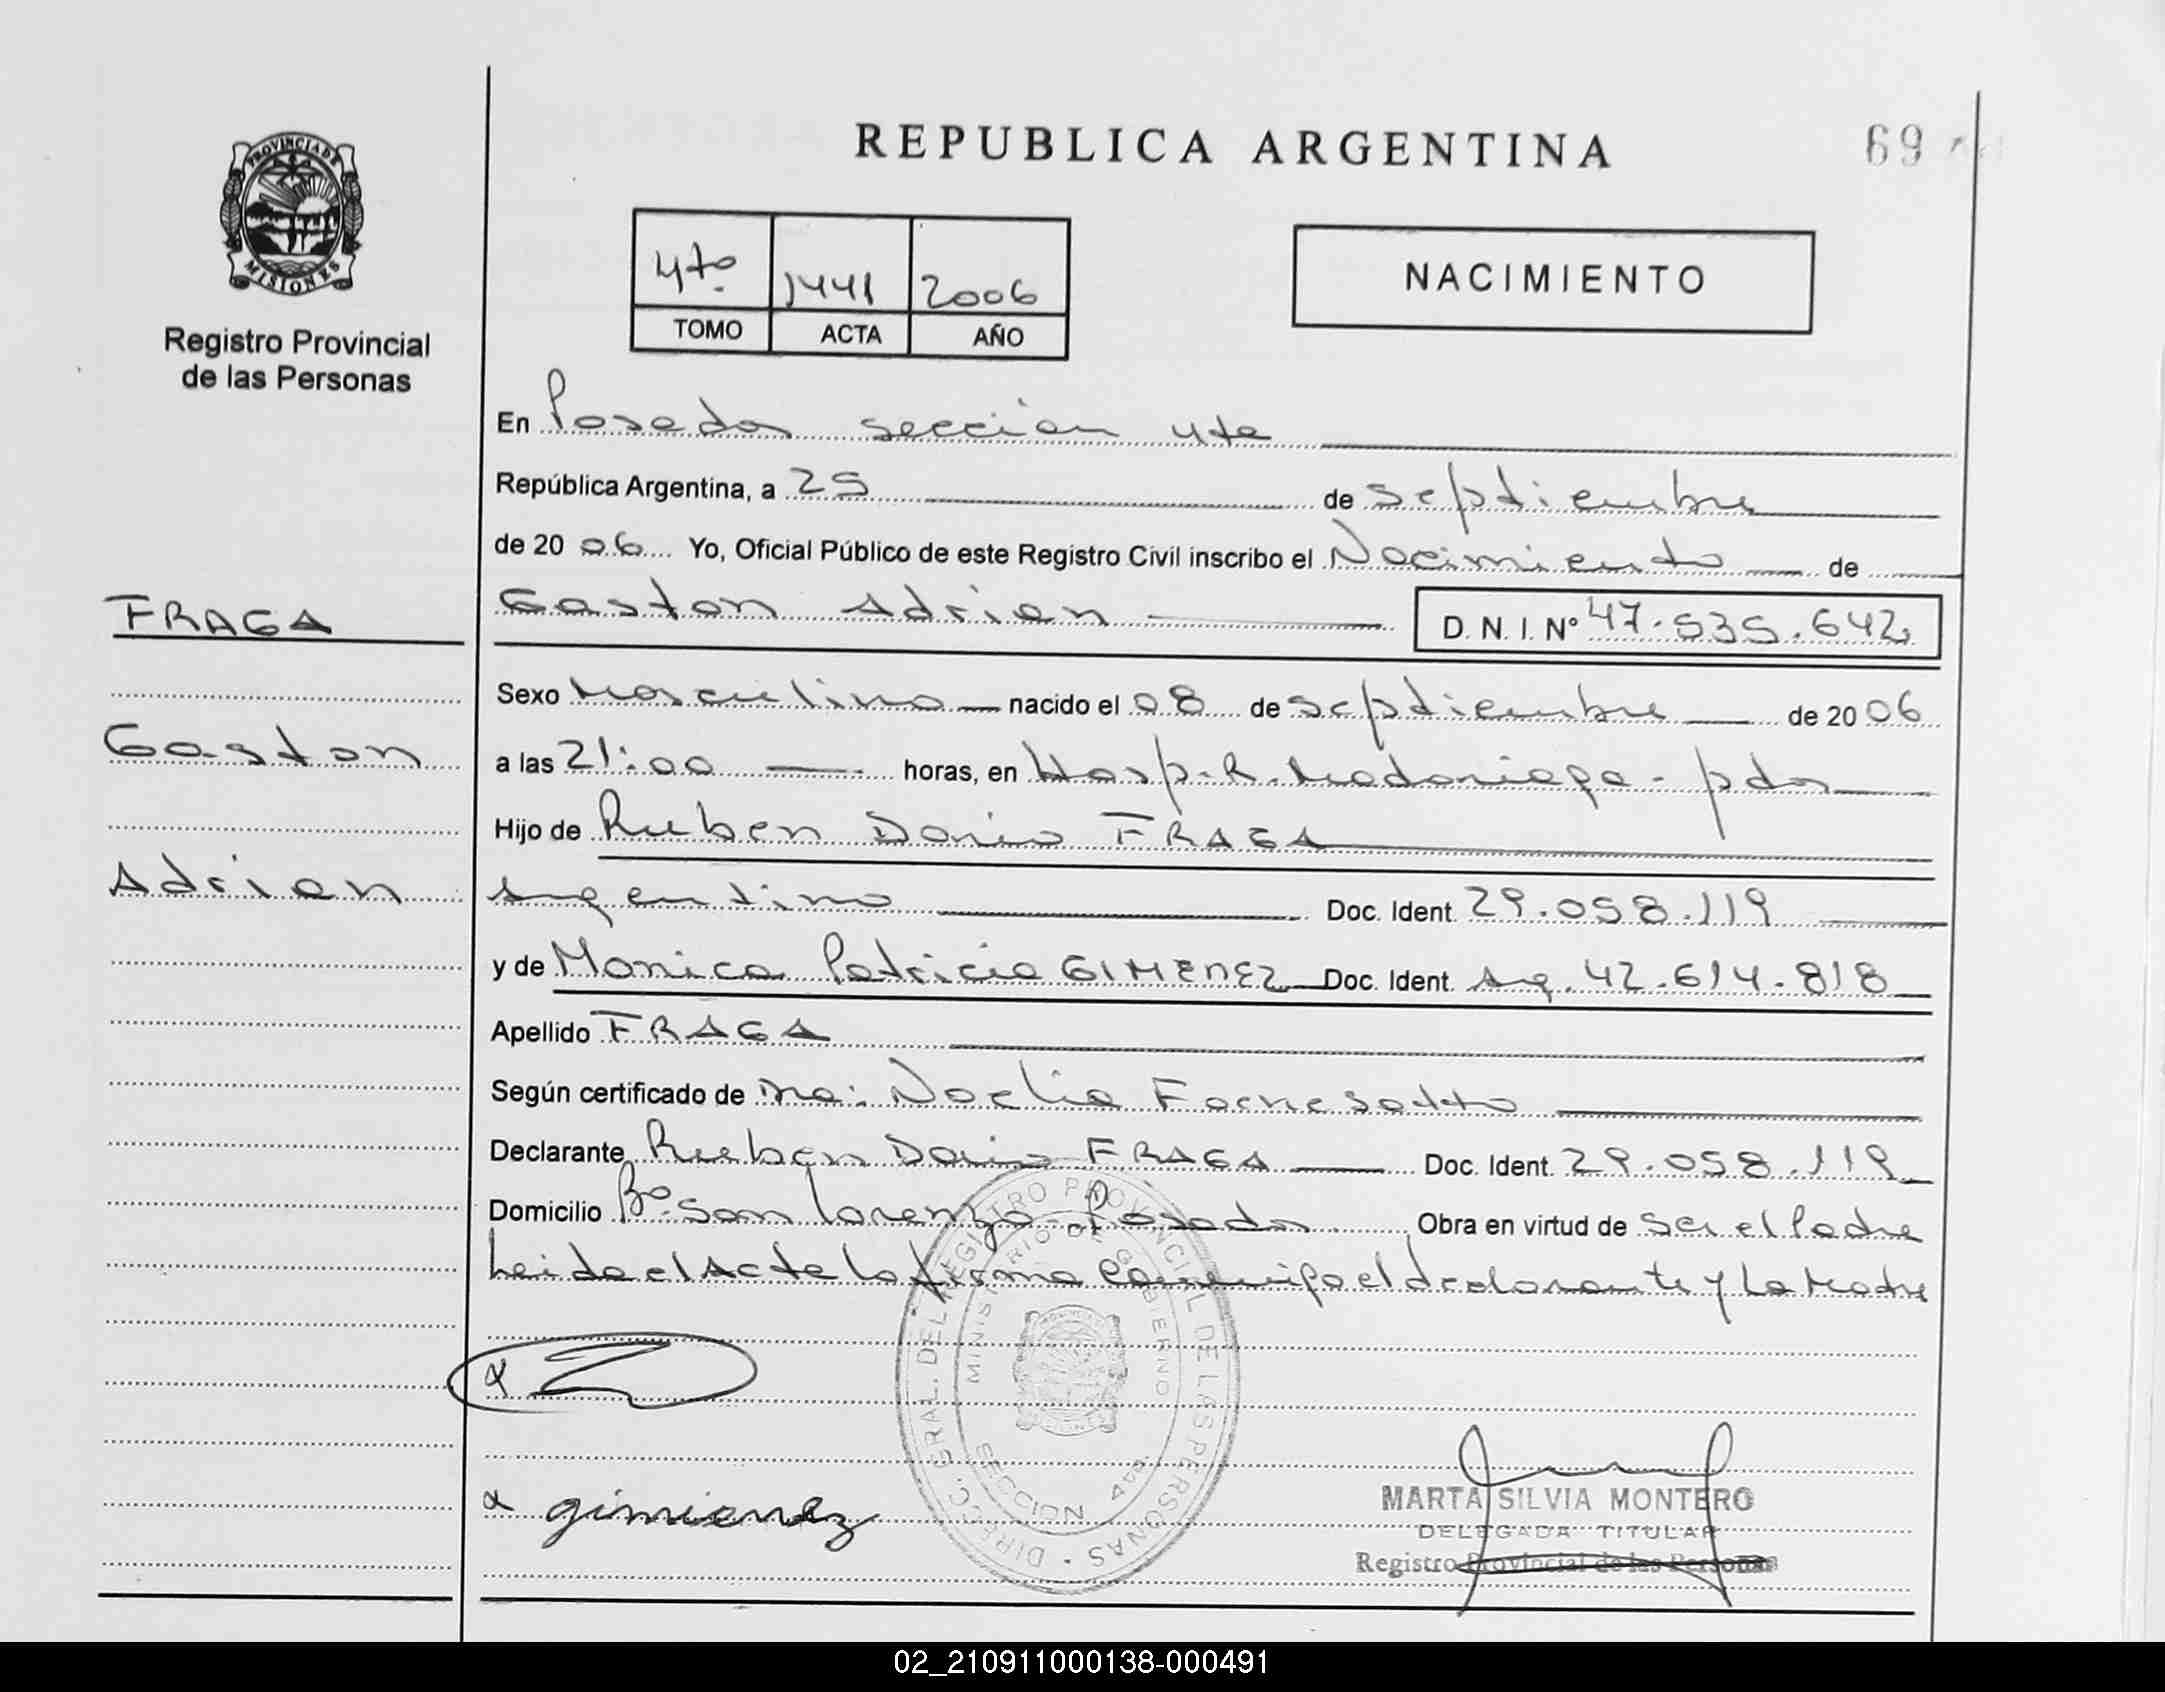 PROVINCIA DE
MISIONES
Registro Provincial
de las Personas
REPUBLICA ARGENTINA
69
4to. 1441 2006
TOMO ACTA AÑO
NACIMIENTO
En Posadas sección 4ta
República Argentina, a 25 de septiembre
de 2006 Yo, Oficial Público de este Registro Civil inscribo el Nacimiento de
FRAGA
Gaston Adrian D. N. I. Nº 47.535.642
Sexo Masculino nacido el 08 de septiembre de 2006
Gaston
a las 21:00 horas, en Hosp. R. Madariaga - pdas
Hijo de Ruben Dario FRAGA
Adrian
Argentino Doc. Ident. 29.058.119
y de Monica Patricia GIMENEZ Doc. Ident. Arg. 42.614.818
Apellido FRAGA
Según certificado de Dra: Noelia
Declarante Ruben Dario FRAGA Doc. Ident. 29.058.119
Domicilio Bº San Lorenzo - Posadas Obra en virtud de ser el Padre
Leida el Acta la firma el declarante y La Madre
DIREC. GRAL. DEL REGISTRO PROVINCIAL DE LAS PERSONAS
MINISTERIO DE GOBIERNO
SECCION 4ta
gimienez
MARTA SILVIA MONTERO
DELEGADA TITULAR
Registro Provincial de las Personas
02_210911000138-000491